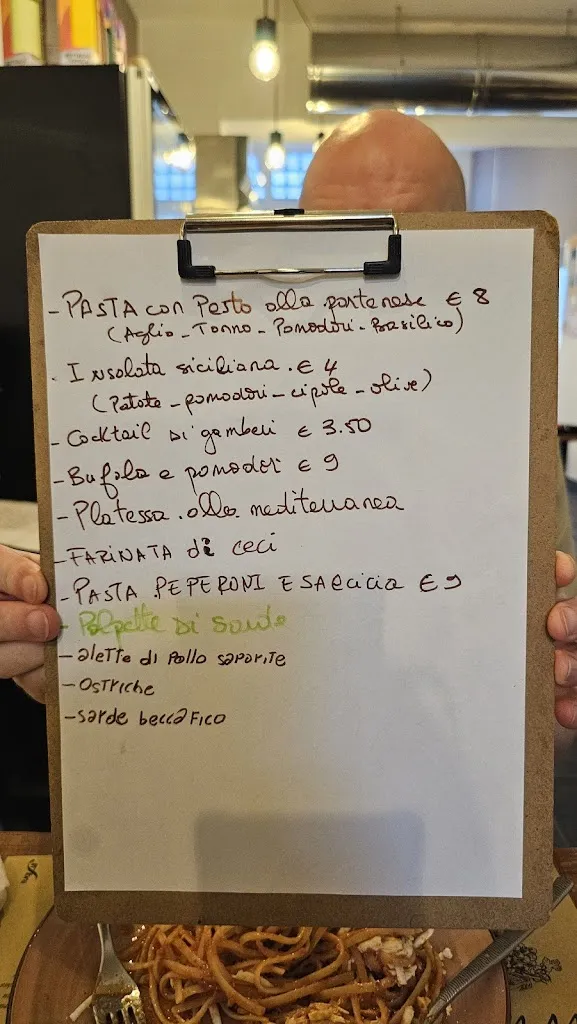 - PASTA con Pesto alla pantenase € 8
(Aglio - Tonno - Pomodori - Basilico)
- Insalata siciliana . € 4
(Patate - pomodori - cipole - olive)
- Cocktail Di gamberi € 3.50
- Bufala e pomodori € 9
- Platessa . alla mediterranea
- FARINATA di ceci
- PASTA PEPERONI E SALCICIA € 9
- Polpette Di
- alette di Pollo saporite
- Ostriche
- sarde beccaFico